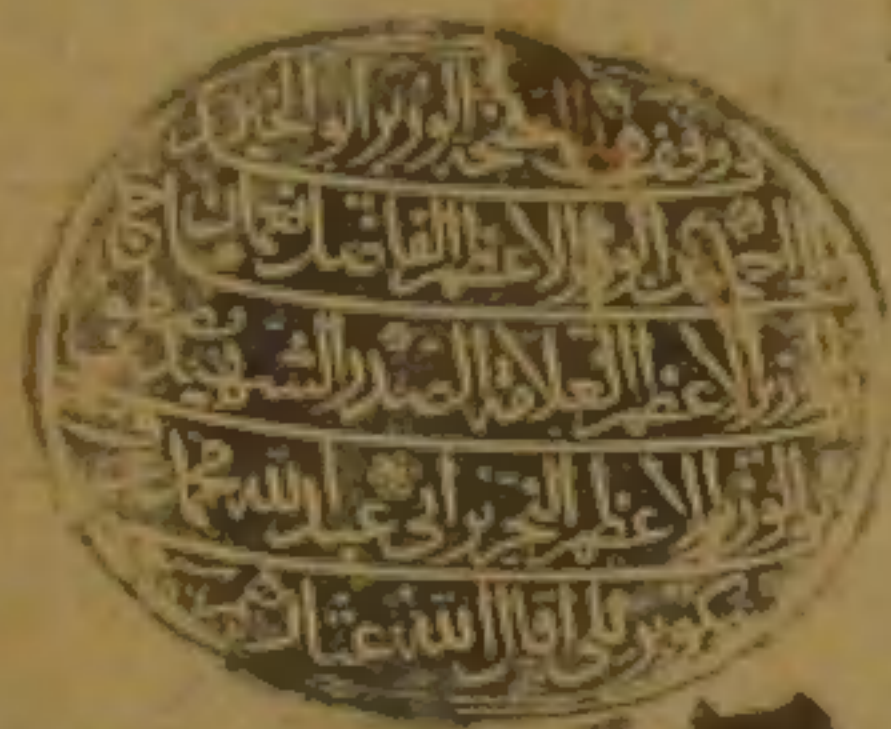 وقف النسخة الوزير ابو الخير
الوزير الاعظم الفاضل نعمان
الوزير الاعظم العلامة الصدر الشهيد مصطفى
الوزير الاعظم النحرير ابي عبد الله محمد
بكوپريلي اقال الله عثارهم